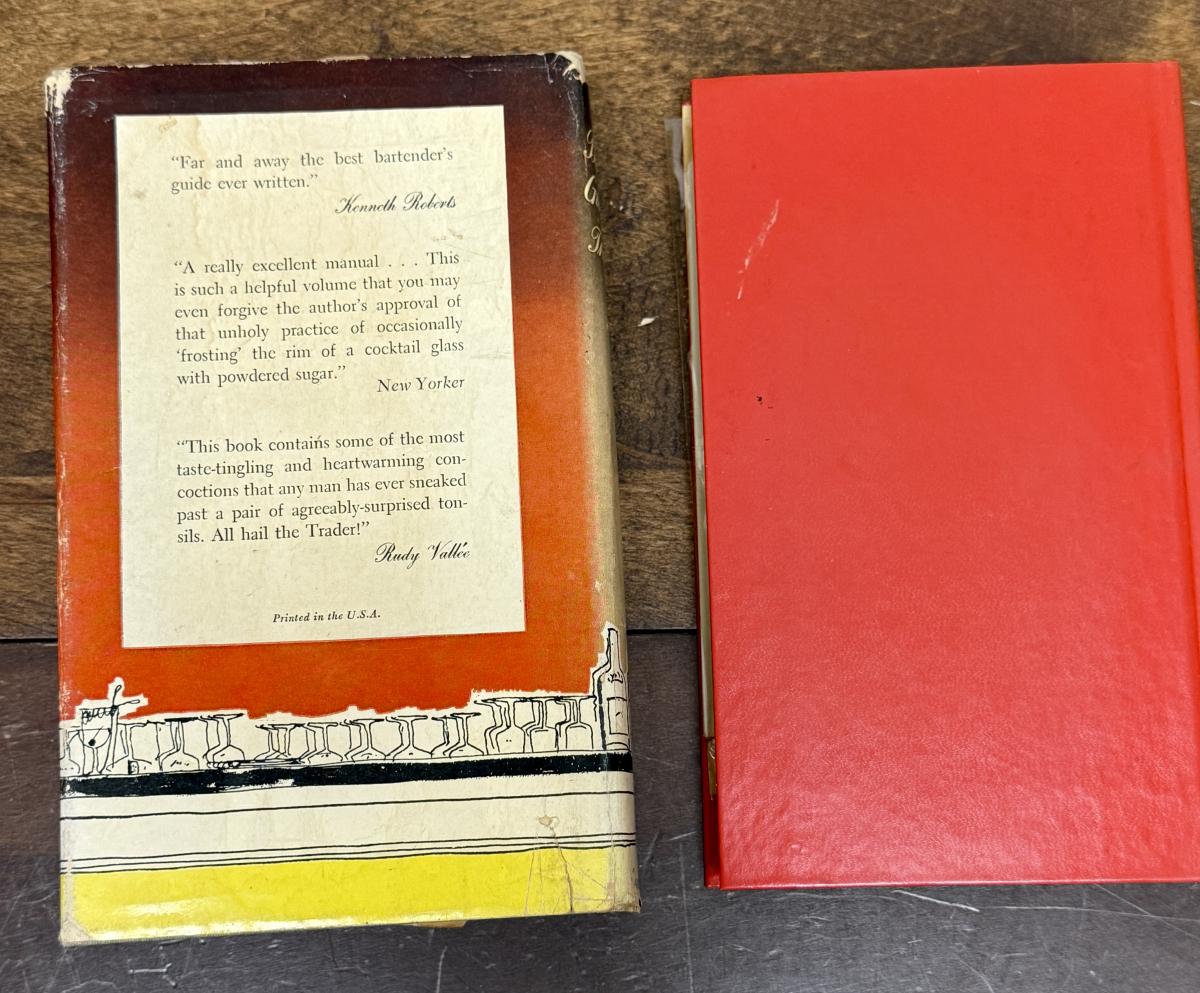 “Far and away the best bartender’s
guide ever written.”
Kenneth Roberts
“A really excellent manual . . . This
is such a helpful volume that you may
even forgive the author’s approval of
that unholy practice of occasionally
‘frosting’ the rim of a cocktail glass
with powdered sugar.”
New Yorker
“This book contains some of the most
taste-tingling and heartwarming con-
coctions that any man has ever sneaked
past a pair of agreeably-surprised ton-
sils. All hail the Trader!”
Rudy Vallée
Printed in the U.S.A.